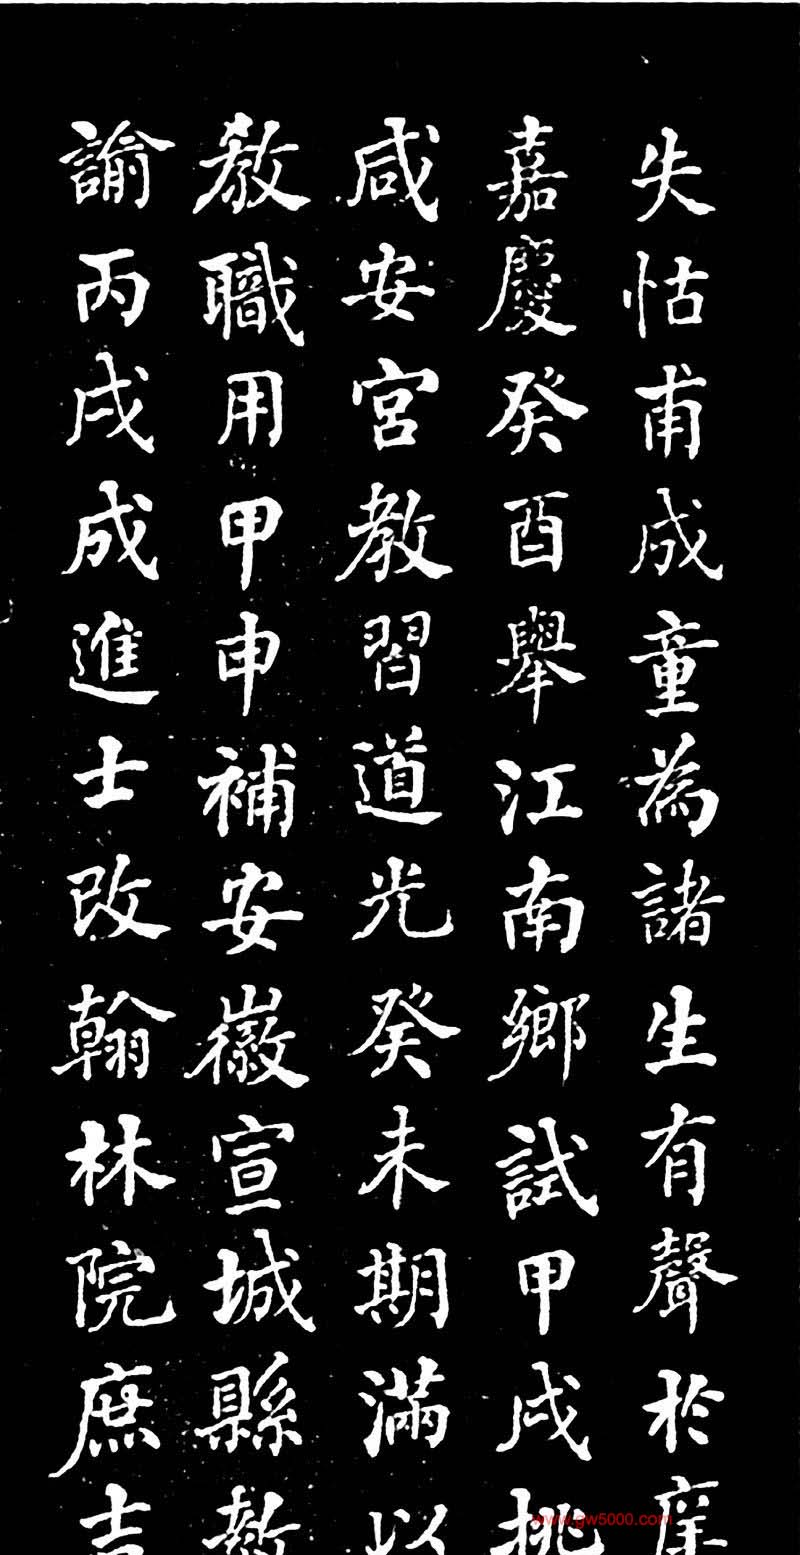 失怙甫成童為諸生有聲於庠
嘉慶癸酉舉江南鄉試甲戌挑
咸安宮教習道光癸未期滿以
教職用甲申補安徽宣城縣教
諭丙戌成進士改翰林院庶吉
www.gw5000.com